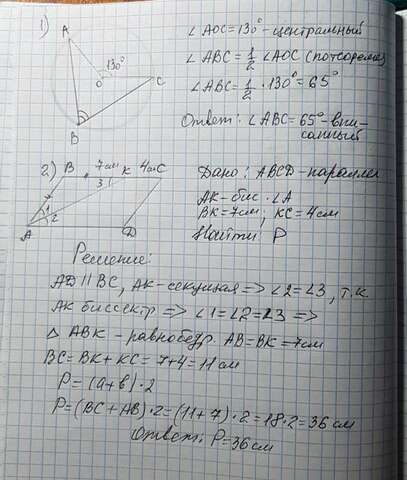 1)
A
130°
O
C
B
∠AOC=130°-центральный
∠ABC=1/2 ∠AOC (по теореме)
∠ABC=1/2·130°=65°
Ответ: ∠ABC=65°-впи-
санный
2)
B 7см K 4см C
3
1
2
A
D
Дано: ABCD-паралл
AK-бис. ∠A
BK=7см; KC=4см
Найти: P
Решение:
AD||BC, AK-секущая=>∠2=∠3, т.к
AK биссектр => ∠1=∠2=∠3 =>
△ ABK - равнобедр. AB=BK=7см
BC=BK+KC=7+4=11см
P=(a+b)·2
P=(BC+AB)·2=(11+7)·2=18·2=36см
Ответ: P=36см